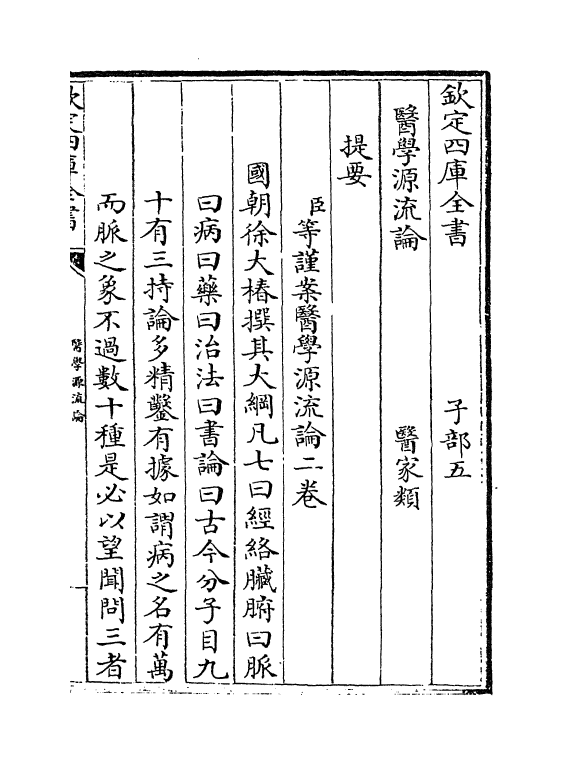 欽定四庫全書　　　子部五
醫學源流論　　　醫家類
提要
臣等謹案醫學源流論二卷
國朝徐大椿撰其大綱凡七曰經絡臟腑曰脈
曰病曰藥曰治法曰書論曰古今分子目九
十有三持論多精鑿有據如謂病之名有萬
而脈之象不過數十種是必以望聞問三者
欽定四庫全書
醫學源流論